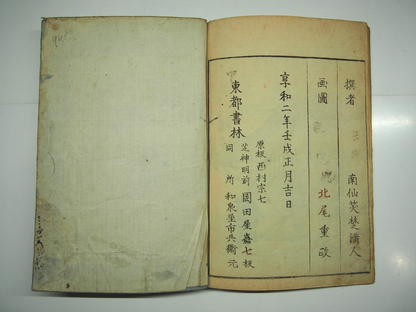 撰者 南仙笑楚滿人
画圖 北尾重政
享和二年壬戌正月吉日
東都書林
原板 西村宗七
芝神明前 圓田屋嘉七板
同所 和泉屋市兵衛元